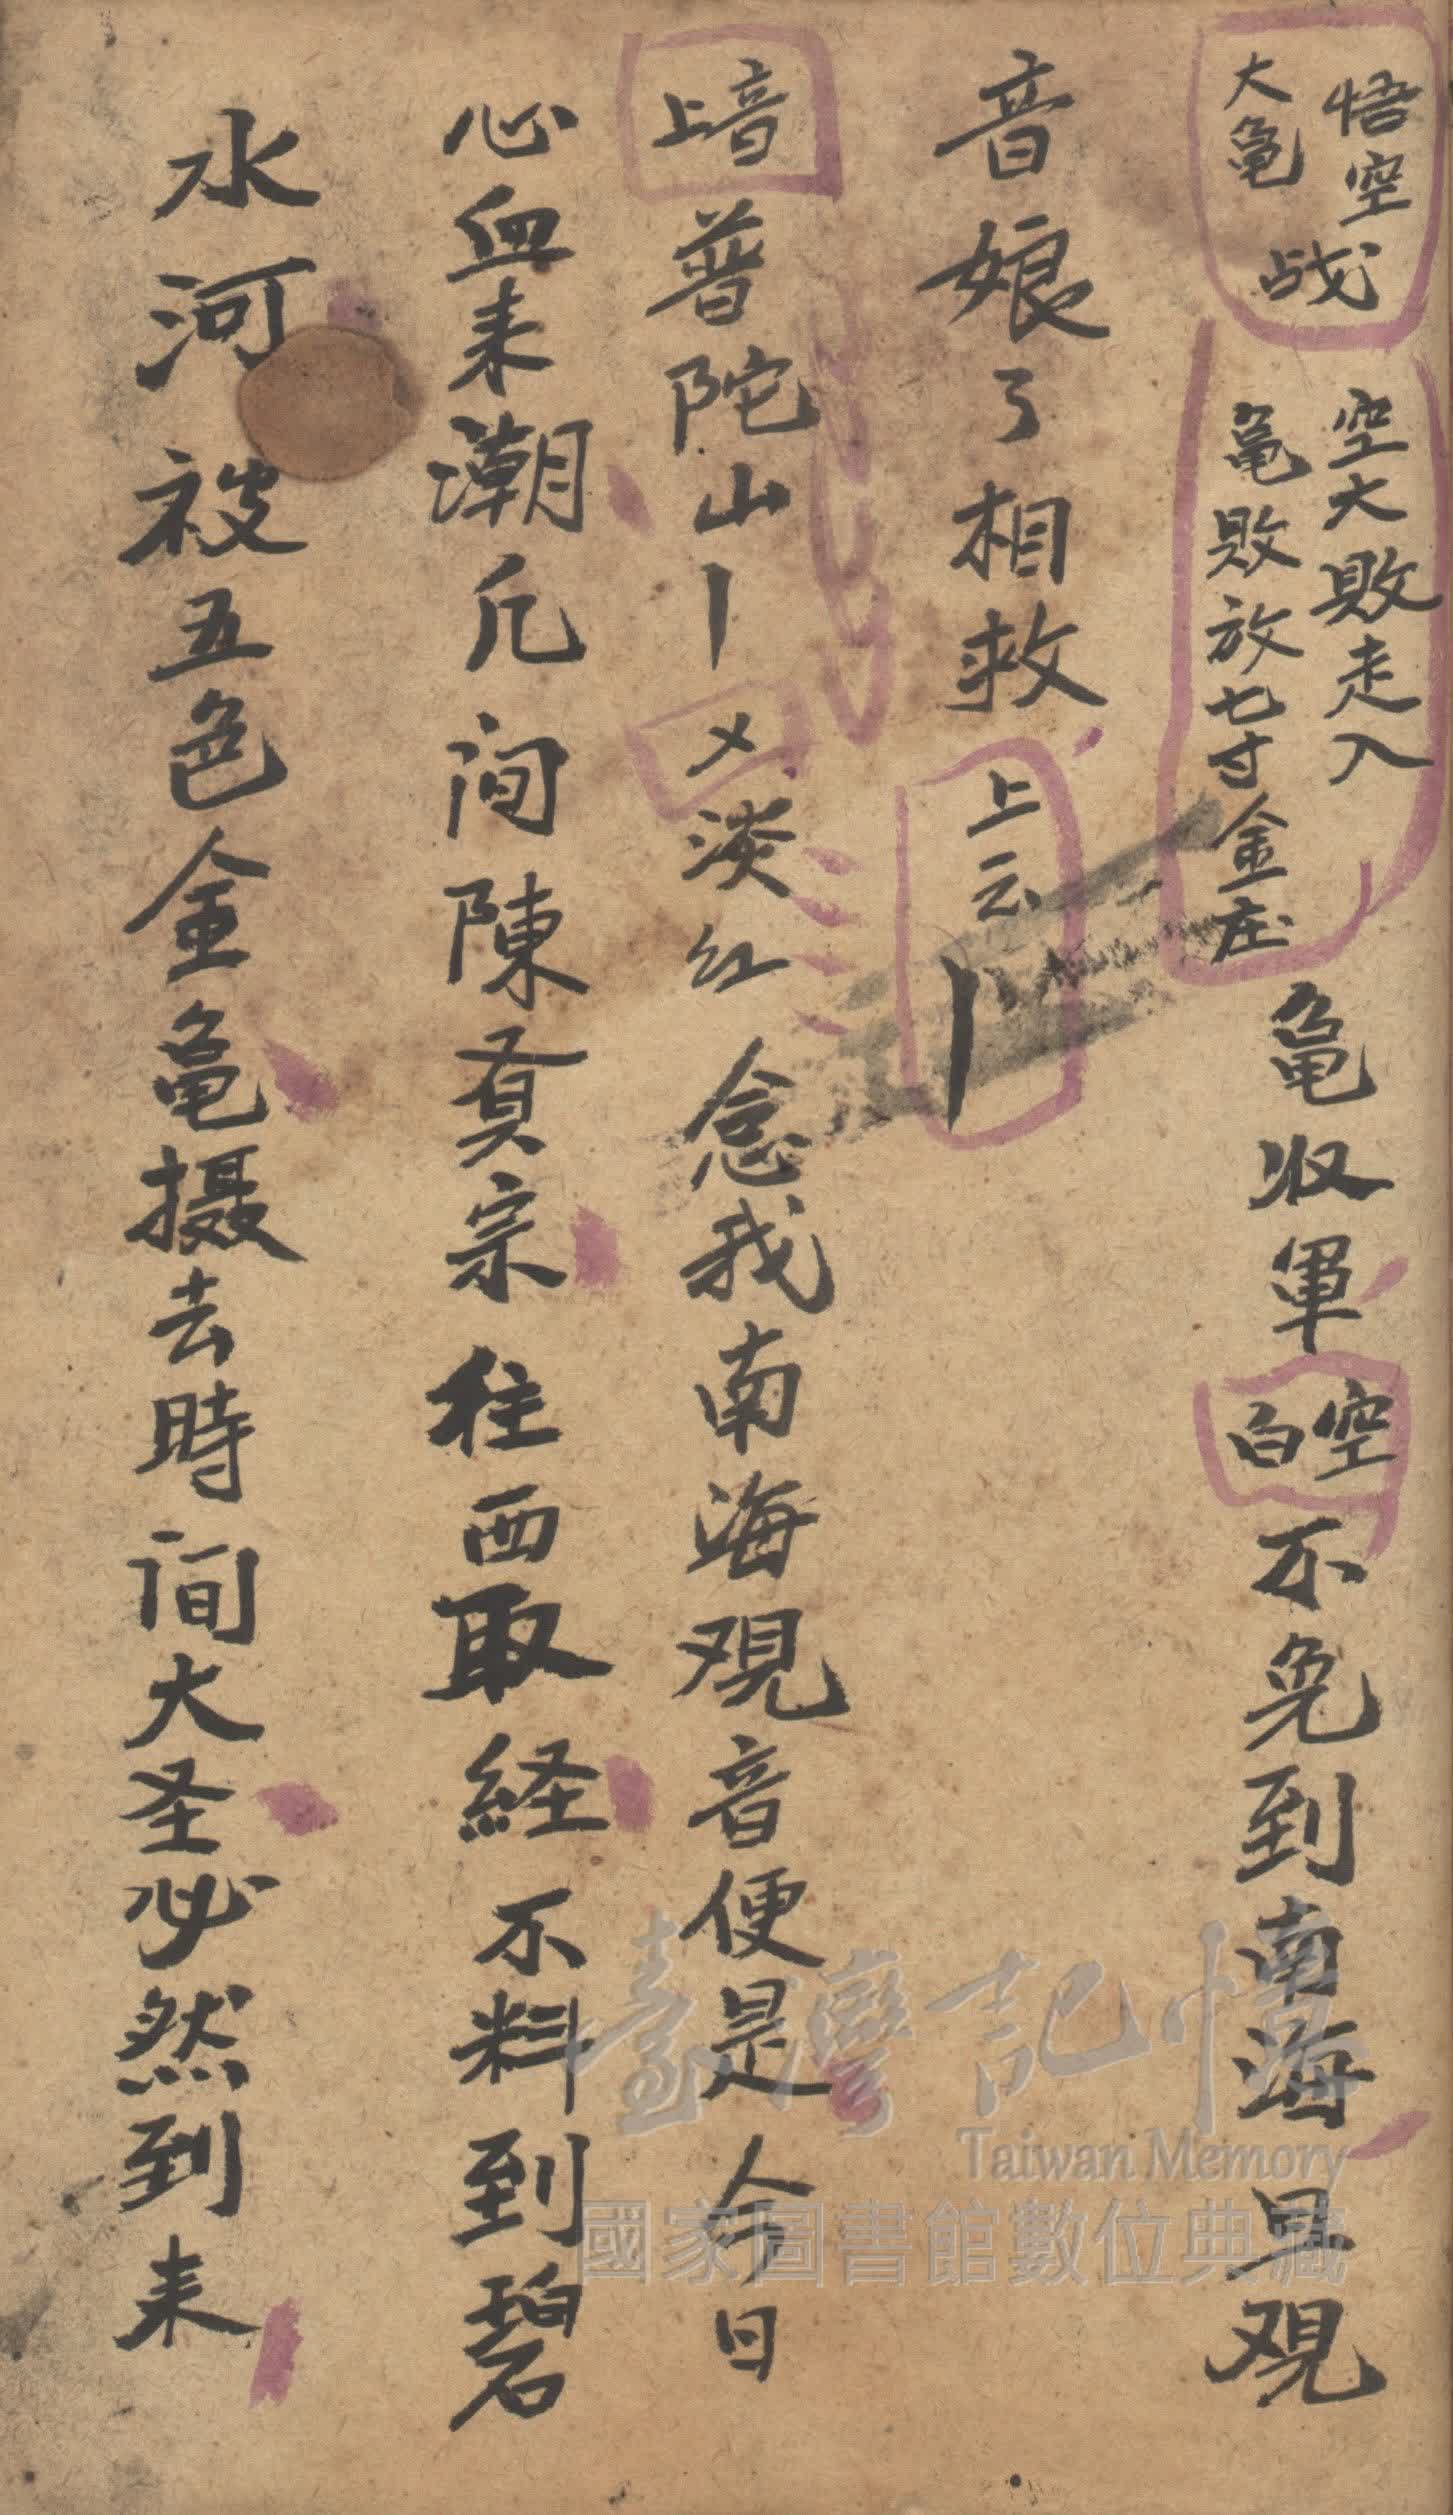 悟空大龟战 空大败走入 龟败放七寸金庄 龟收軍 空白 不免到南海見观
音娘々相救 上云
上音 普陀山 メ 淡红 念我南海观音便是今日
心血来潮凡间陳真宗往西取経不料到碧
水河被五色金龟摄去時间大圣必然到来
臺灣記憶
Taiwan Memory
國家圖書館數位典藏